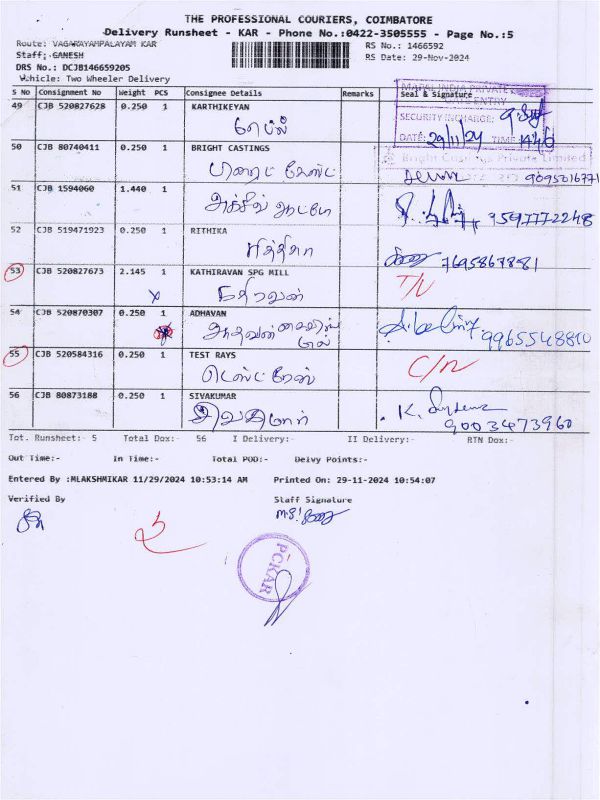 THE PROFESSIONAL COURIERS, COIMBATORE
Delivery Runsheet - KAR - Phone No.:0422-3505555 - Page No.:5
Route: VAGARAYAMPALAYAM KAR RS No.: 1466592
Staff: GANESH RS Date: 29-Nov-2024
DRS No.: DCJB146659205
Vehicle: Two Wheeler Delivery
S No Consignment No Weight PCS Consignee Details Remarks Seal & Signature
MARAL INDIA PRIVATE
ENTRY
49 CJB 520827628 0.250 1 KARTHIKEYAN SECURITY INCHARGE:
DATE: 29/11/24 TIME
50 CJB 80740411 0.250 1 BRIGHT CASTINGS Bright Castings Private Limited
51 CJB 1594060 1.440 1
52 CJB 519471923 0.250 1 RITHIKA
ரித்திகா 7695867881
53 CJB 520827673 2.145 1 KATHIRAVAN SPG MILL T/N
x கதிரவன்
54 CJB 520870307 0.250 1 ADHAVAN
ஆதவன் 9965548810
55 CJB 520584316 0.250 1 TEST RAYS C/N
டெஸ்ட் ரேஸ்
56 CJB 80873188 0.250 1 SIVAKUMAR
சிவகுமார் 9003473960
Tot. Runsheet:- 5 Total Dox:- 56 I Delivery:- II Delivery:- RTN Dox:-
Out Time:- In Time:- Total POD:- Delvy Points:-
Entered By :MLAKSHMIKAR 11/29/2024 10:53:14 AM Printed On: 29-11-2024 10:54:07
Verified By Staff Signature
PCKAR